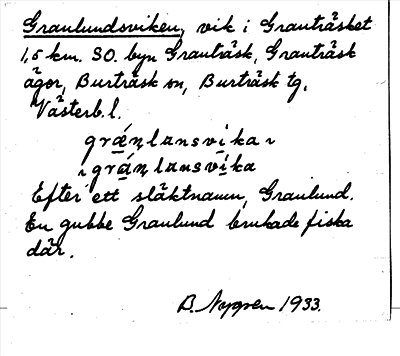 Granlundsviken, vik i Granträsket
1,5 km. SO. byn Granträsk, Granträsk
ägor, Burträsk sn, Burträsk tg,
Västerb. l.
grǽnlansvika ı
ı grǽnlansvika
Efter ett släktnamn, Granlund.
En gubbe Granlund brukade fiska
där.
B. Nygren 1933.